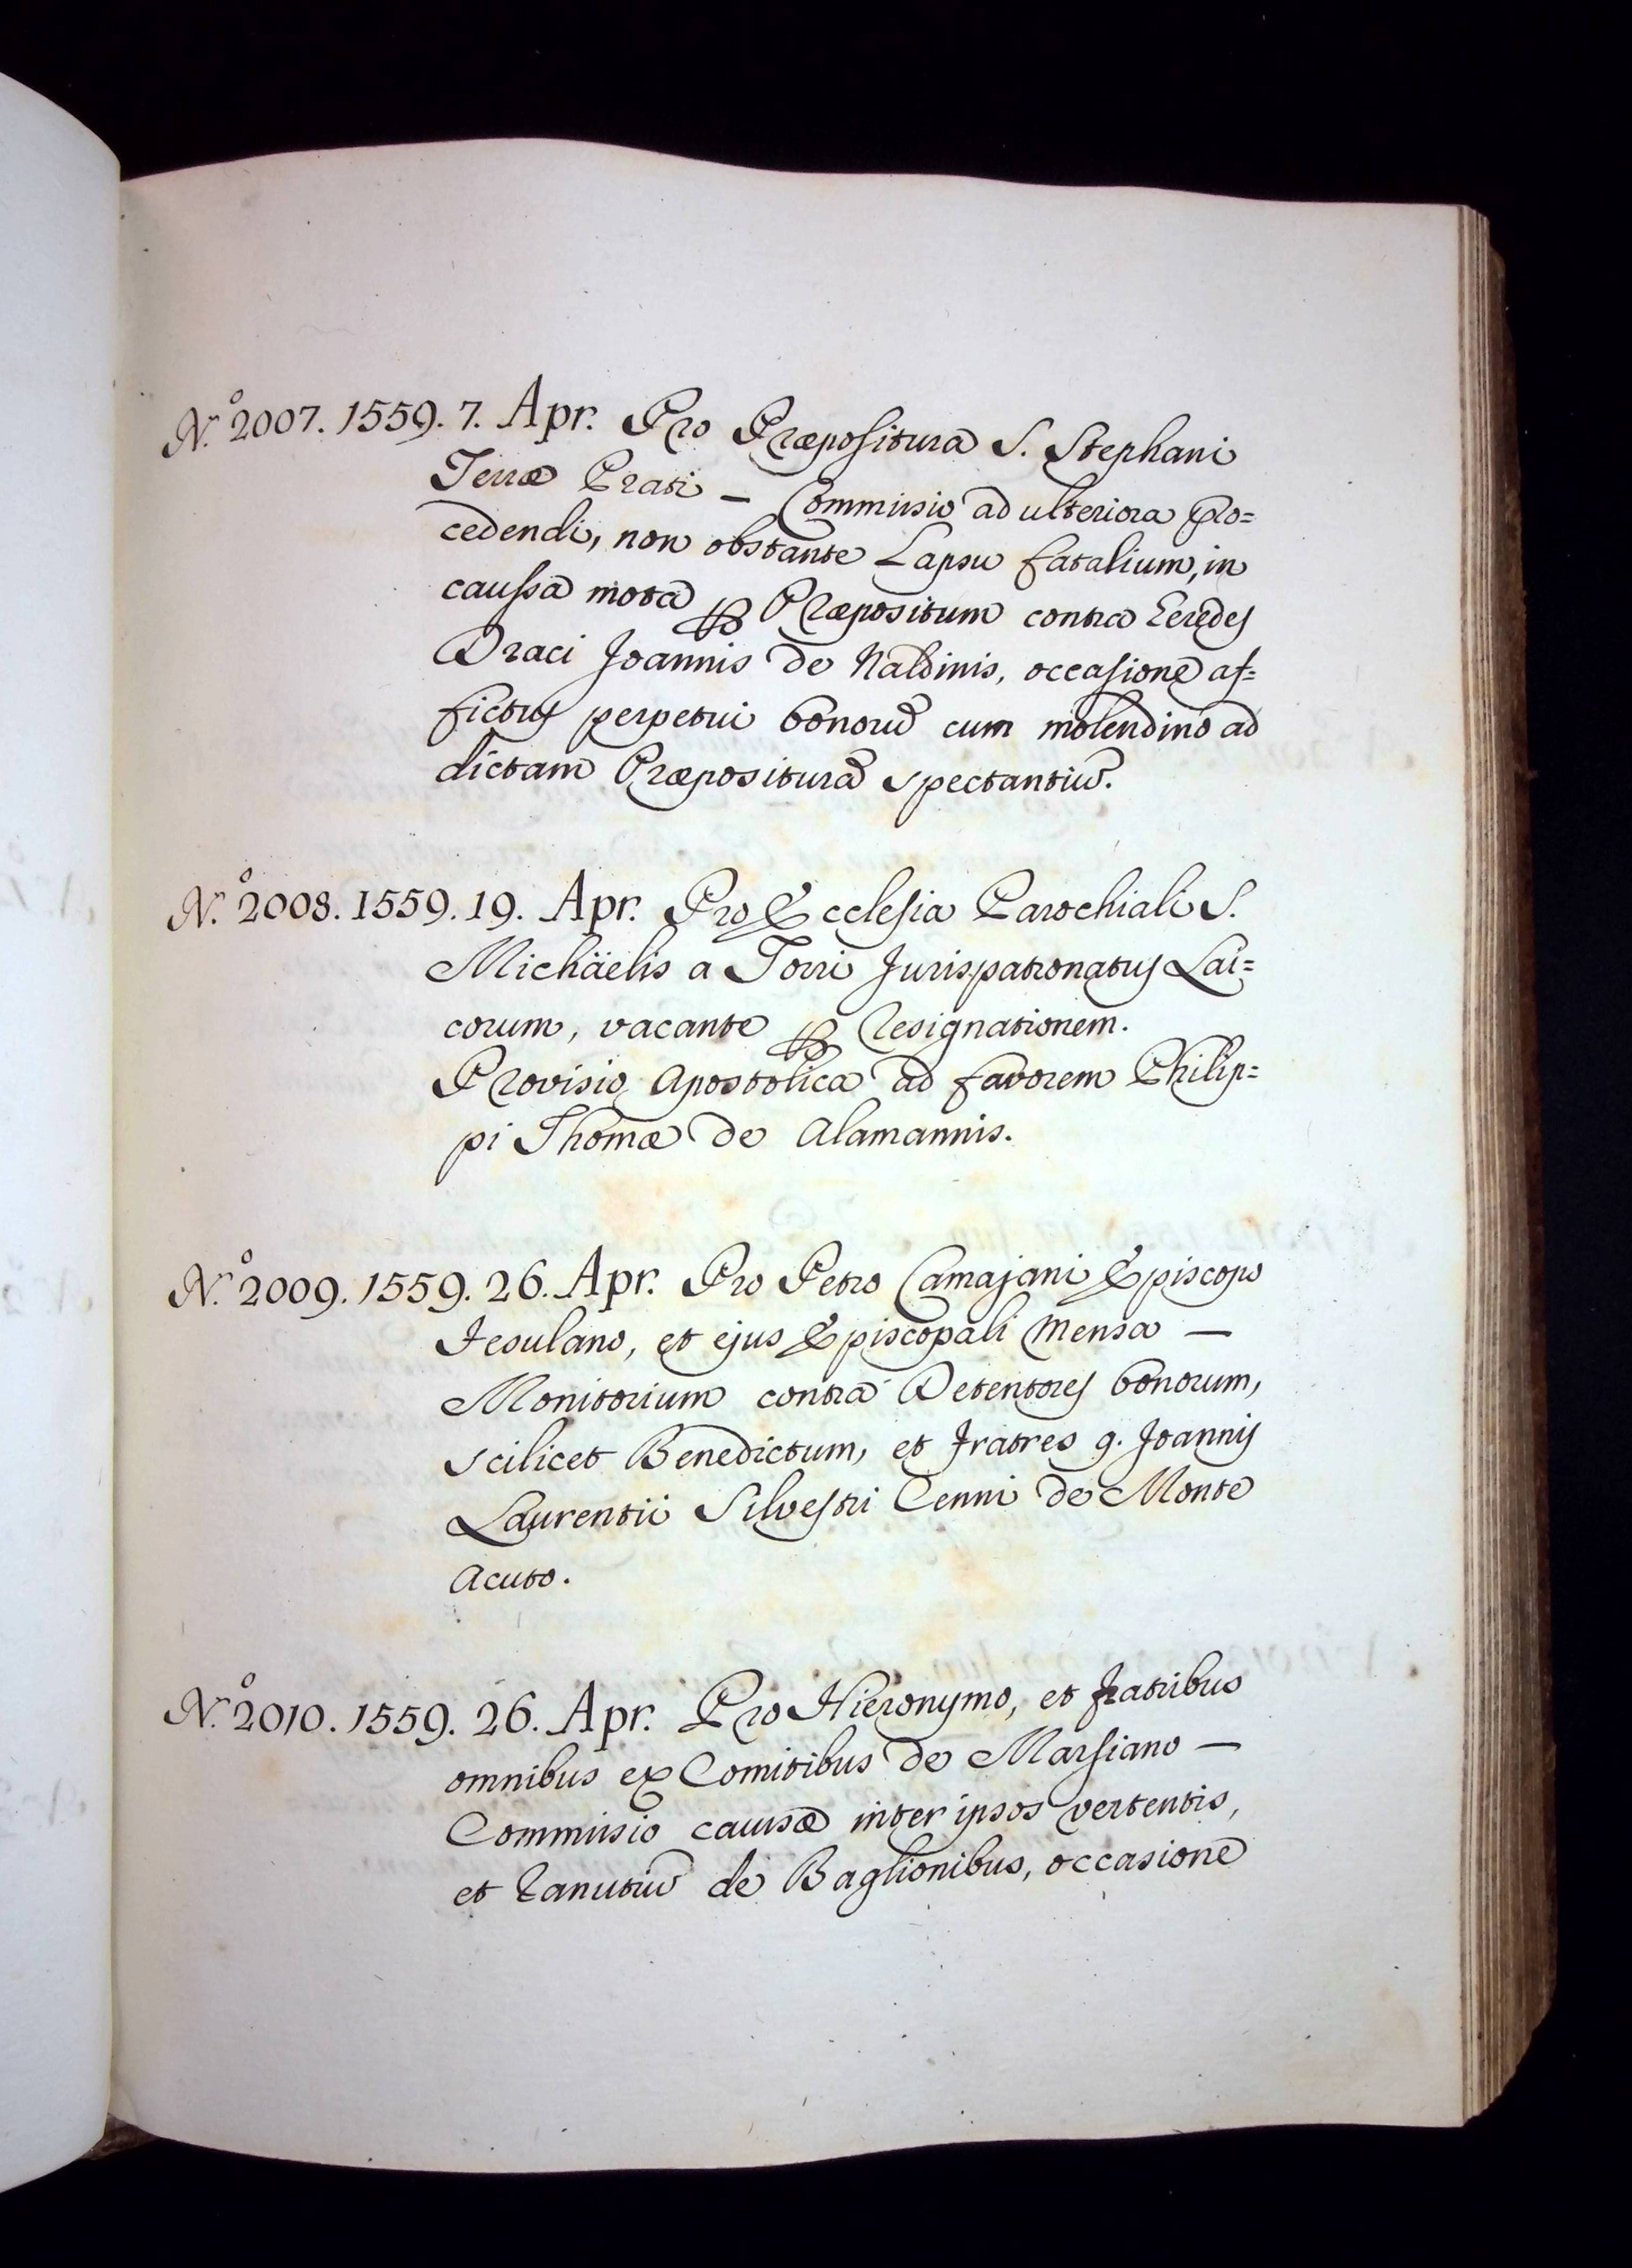 N.º 2007. 1559. 7. Apr. Pro Præpositura S. Stephani
Terræ Prati — Commissio ad ulteriora pro=
cedendi, non obstante Lapsu fatalium, in
caussa mota ꝑ Præpositum contra Heredes
Draci Joannis de Naldinis, occasione af=
fictus perpetui bonorū cum molendino ad
dictam Præpositurā spectantiū.
N.º 2008. 1559. 19. Apr. Pro Ecclesia Parochiali S.
Michäelis a Torri Jurispatronatus Lai=
corum, vacante ꝑ Resignationem.
Provisio Apostolica ad favorem Philip=
pi Thomæ de Alamannis.
N.º 2009. 1559. 26. Apr. Pro Petro Camajani Episcopo
Fesulano, et ejus Episcopali Mensa —
Monitorium contra Detentores bonorum,
scilicet Benedictum, et Fratres q. Joannis
Laurentii Silvestri Cenni de Monte
Acuto.
N.º 2010. 1559. 26. Apr. Pro Hieronymo, et fratribus
omnibus ex Comitibus de Marsiano —
Commissio causæ inter ipsos vertentis,
et Ranutiū de Baglionibus, occasione